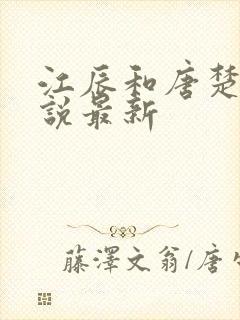 江辰和唐楚
說最新
藤澤文翁/唐